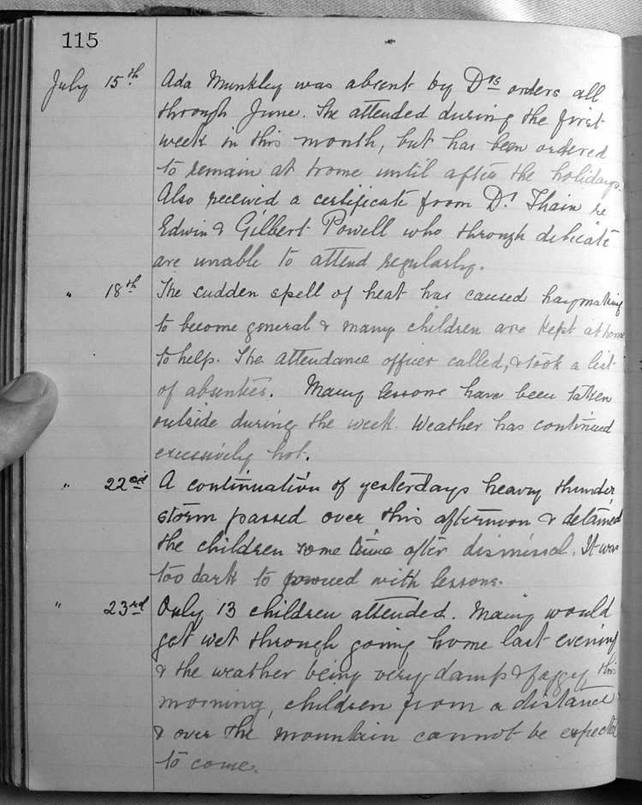 115
July 15th. Ada Munkley was absent by Drs orders all
through June. She attended during the first
week in this month, but has been ordered
to remain at home until after the holidays.
Also received a certificate from Dr Thain re
Edwin & Gilbert Powell who through delicate
are unable to attend regularly.
" 18th The sudden spell of heat has caused haymaking
to become general & many children are kept at home
to help. The attendance officer called, & took a list
of absentees. Many lessons have been taken
outside during the week. Weather has continued
excessively hot.
" 22nd A continuation of yesterdays heavy thunder
storm passed over this afternoon & detained
the children some time after dismissal. It was
too dark to proceed with lessons.
" 23rd Only 13 children attended. Many would
get wet through going home last evening
& the weather being very damp & foggy this
morning, children from a distance
& over the mountain cannot be expected
to come.